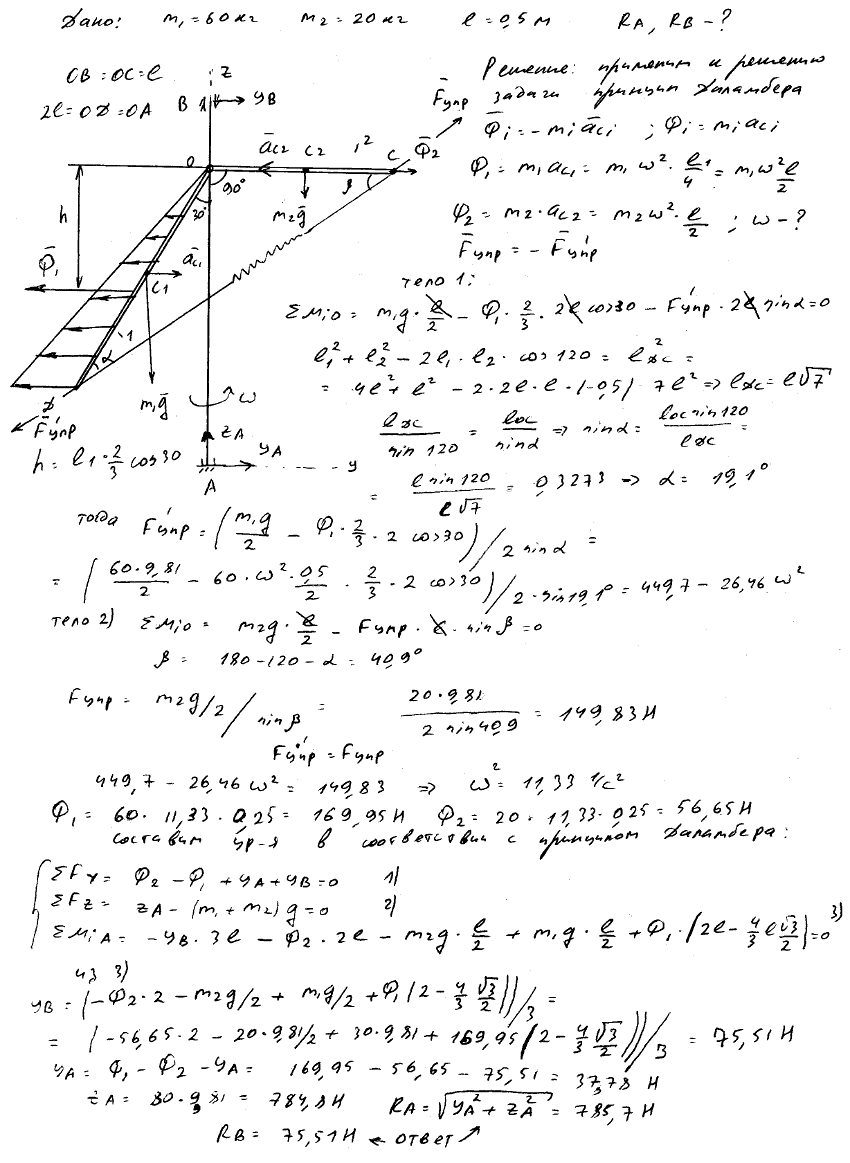 Дано: m₁=60 кг m₂=20 кг ℓ=0,5 м RA, RB -?
OB=OC=ℓ
2ℓ=OD=OA
Решение: применим к решению
задачи принцип Даламбера
Φ̄i = -mi āci ; Φi = mi aci
Φ₁ = m₁ ac₁ = m₁ ω² · ℓ₁/4 = m₁ω² ℓ/2
Φ₂ = m₂ · ac₂ = m₂ω² · ℓ/2 ; ω -?
F̄упр = - F̄'упр
z
B
yB
F̄упр
O
āc₂
c₂
2
C
Φ̄₂
90°
30°
β
m₂ḡ
h
Φ̄₁
āc₁
C1
1
α
D
m₁ḡ
ω
F̄'упр
zA
yA
y
A
h = ℓ₁ · 2/3 cos30
тело 1:
ΣMiO = m₁g · ℓ/2 - Φ₁ · 2/3 · 2ℓ cos30 - F'упр · 2ℓ sinα = 0
ℓ₁² + ℓ₂² - 2ℓ₁ · ℓ₂ · cos 120 = ℓ²DC =
= 4ℓ² + ℓ² - 2·2ℓ·ℓ·(-0,5) 7ℓ² => ℓDC = ℓ√7
ℓDC / sin 120 = ℓOC / sinα => sinα = ℓOC sin120 / ℓDC =
= ℓ sin120 / ℓ√7 = 0,3273 => α = 19,1°
тогда F'упр = (m₁g/2 - Φ₁ · 2/3 · 2 cos30) / 2 sinα =
= (60·9,81/2 - 60·ω²·0,5/2 · 2/3 · 2 cos30) / 2·sin19,1° = 449,7 - 26,46 ω²
тело 2) ΣMiO = m₂g · ℓ/2 - Fупр · ℓ · sin β = 0
β = 180-120-α = 40,9°
Fупр = m₂g/2 / sin β = 20·9,81 / 2 sin40,9 = 149,83 Н
F'упр = Fупр
449,7 - 26,46 ω² = 149,83 => ω² = 11,33 1/c²
Φ₁ = 60 · 11,33 · 0,25 = 169,95 Н Φ₂ = 20 · 11,33 · 0,25 = 56,65 Н
составим ур-я в соответствии с принципом Даламбера:
ΣFY = Φ₂ - Φ₁ + yA + yB = 0 1)
ΣFz = zA - (m₁ + m₂) g = 0 2)
ΣMiA = -yB · 3ℓ - Φ₂ · 2ℓ - m₂g · ℓ/2 + m₁g · ℓ/2 + Φ₁ · (2ℓ - 4/3 ℓ √3/2) = 0 3)
из 3)
yB = (-Φ₂·2 - m₂g/2 + m₁g/2 + Φ₁(2 - 4/3 √3/2)) / 3 =
= (-56,65·2 - 20·9,81/2 + 30·9,81 + 169,95(2 - 4/3 √3/2)) / 3 = 75,51 Н
yA = Φ₁ - Φ₂ - yA = 169,95 - 56,65 - 75,51 = 37,78 Н
zA = 80·9,81 = 784,8 Н RA = √(yA² + zA²) = 785,7 Н
RB = 75,51 Н ← ответ ↗